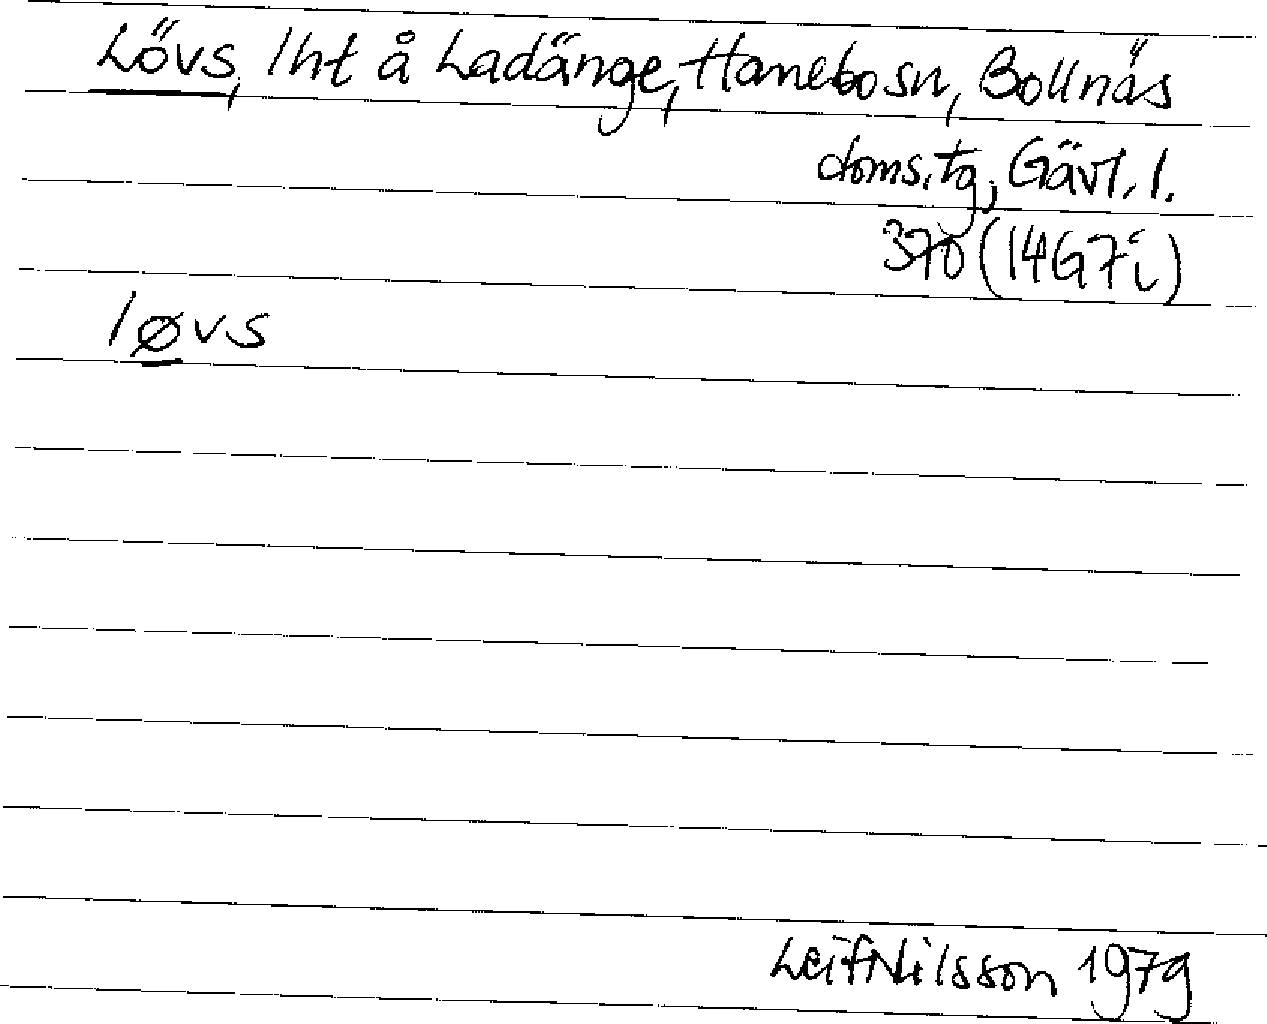 Lövs, lht å Ladänge, Hanebo sn, Bollnäs
doms.tg, Gävl. l.
370 (14G7i)
løvs
Leif Nilsson 1979